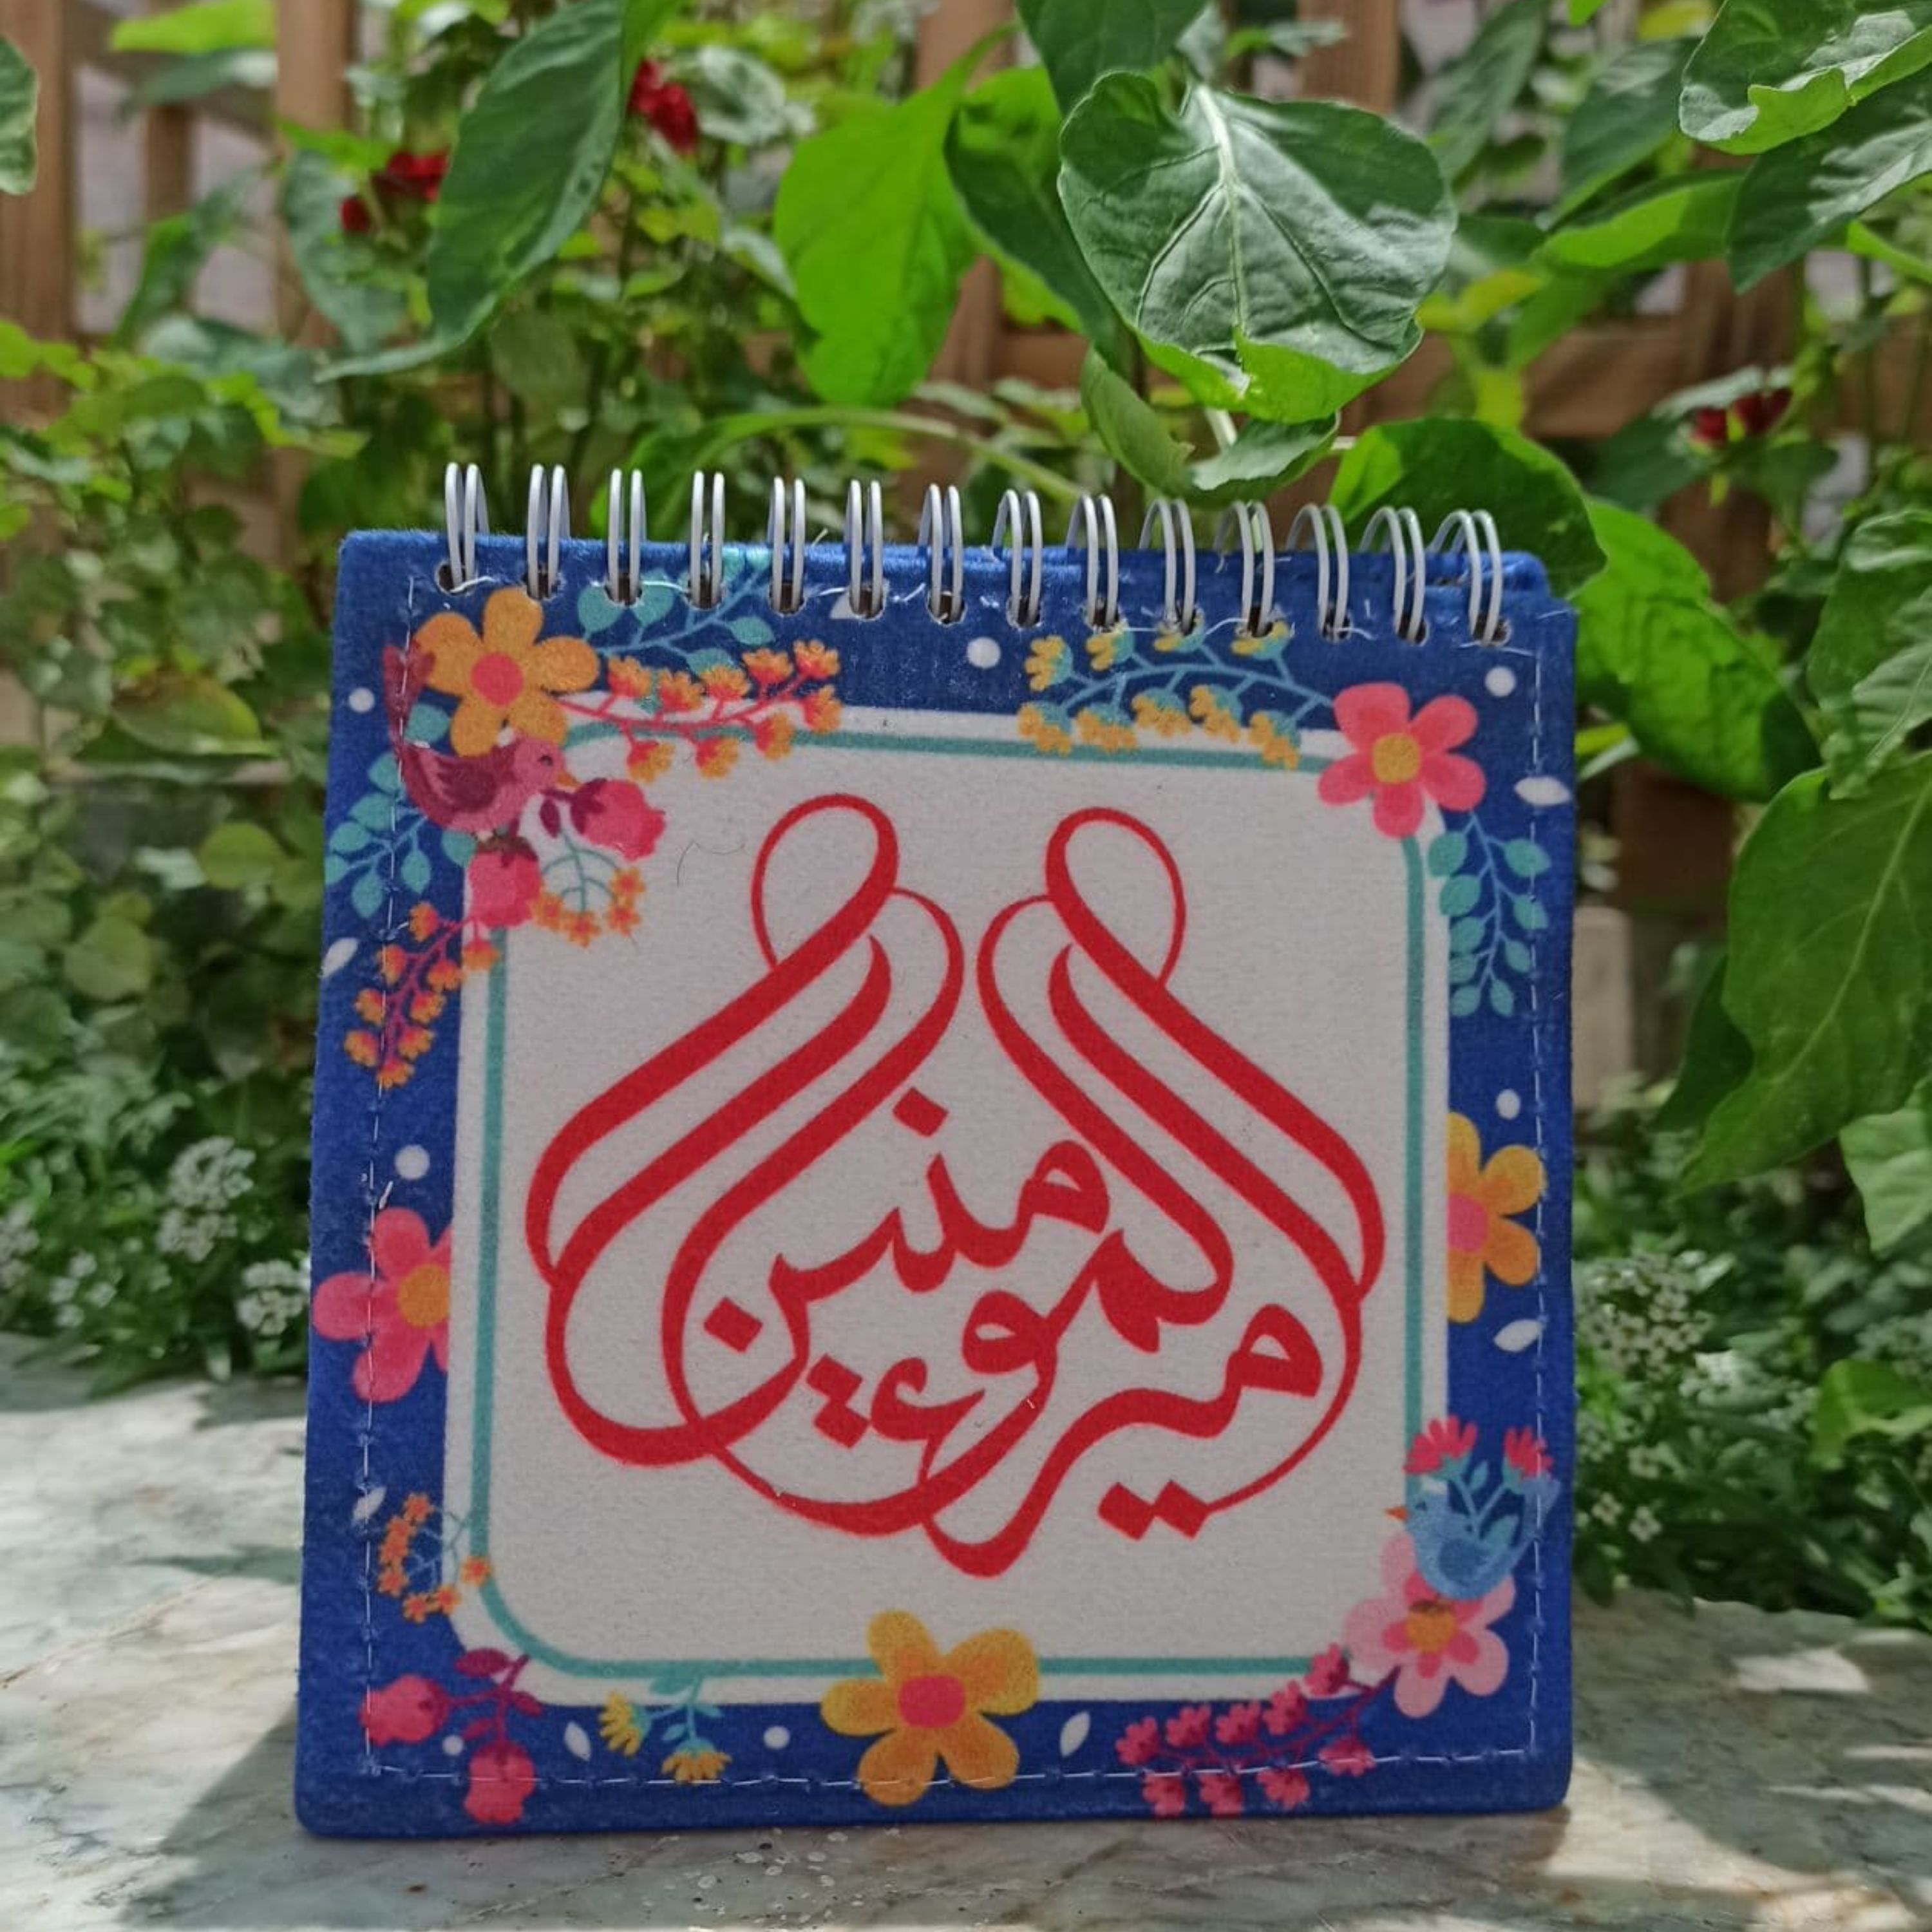 امیر المؤمنین